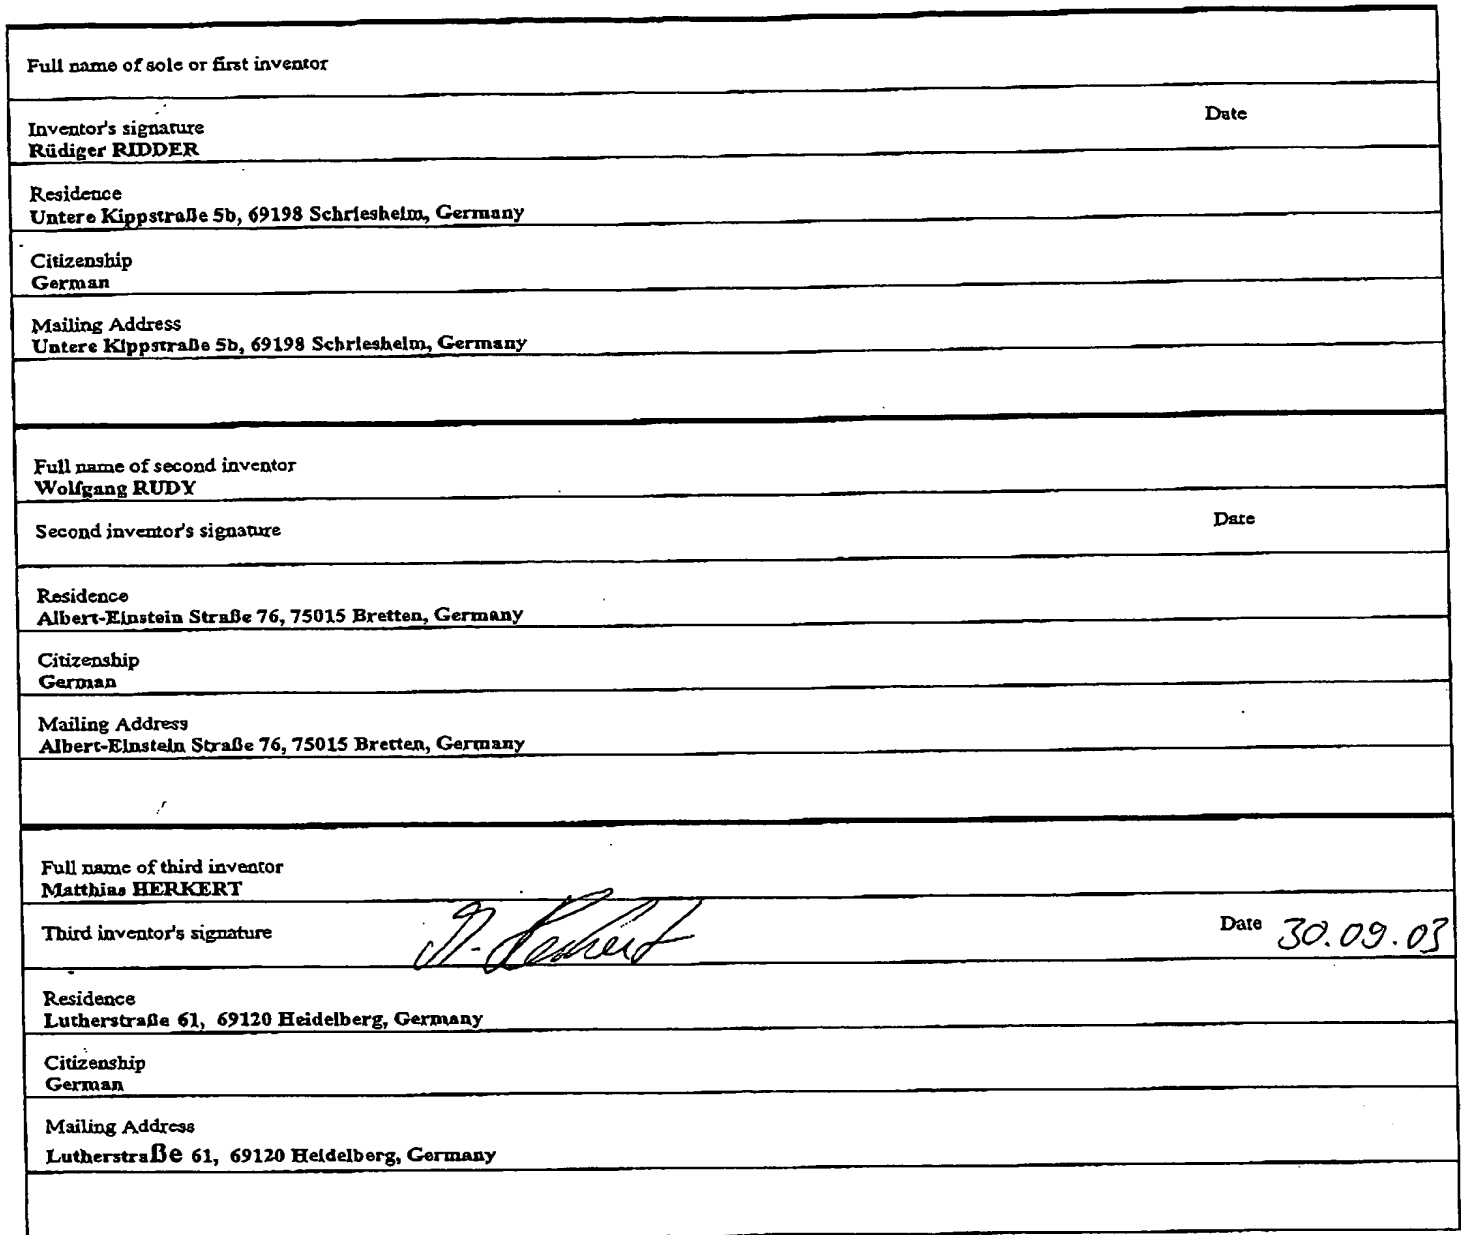 Full name of sole or first inventor
Date
Inventor's signature
Rüdiger RIDDER
Residence
Untere Kippstraße 5b, 69198 Schriesheim, Germany
Citizenship
German
Mailing Address
Untere Kippstraße 5b, 69198 Schriesheim, Germany
Full name of second inventor
Wolfgang RUDY
Second inventor's signature Date
Residence
Albert-Einstein Straße 76, 75015 Bretten, Germany
Citizenship
German
Mailing Address
Albert-Einstein Straße 76, 75015 Bretten, Germany
Full name of third inventor
Matthias HERKERT
Third inventor's signature M. Herkert Date 30.09.03
Residence
Lutherstraße 61, 69120 Heidelberg, Germany
Citizenship
German
Mailing Address
Lutherstraße 61, 69120 Heidelberg, Germany